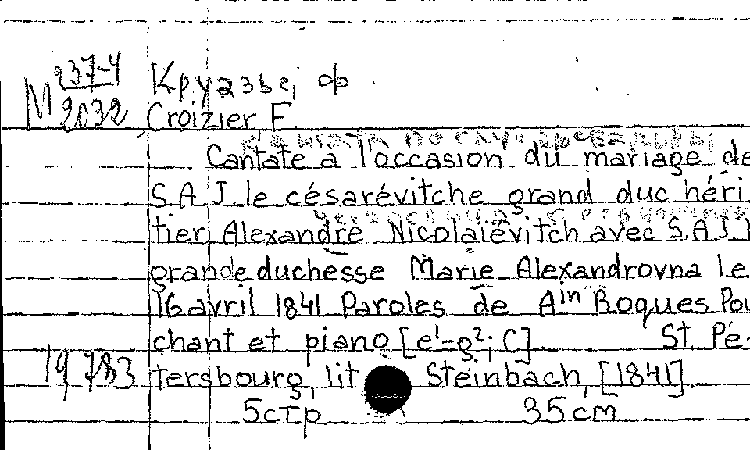 М 237-4
2032
Круазье, Ф
Croizier, F
Cantate a l'occasion du mariage de
S.A.J. le césarévitche grand duc héri
tier Alexandre Nicolaiévitch avec S.A.J.
grande duchesse Marie Alexandrovna le
16 avril 1841 Paroles de Ain Roques Pou
chant et piano [e¹-g²; C] St. Pe-
19 783 tersbourg, lit Steinbach, [1841]
5 стр 35 cm